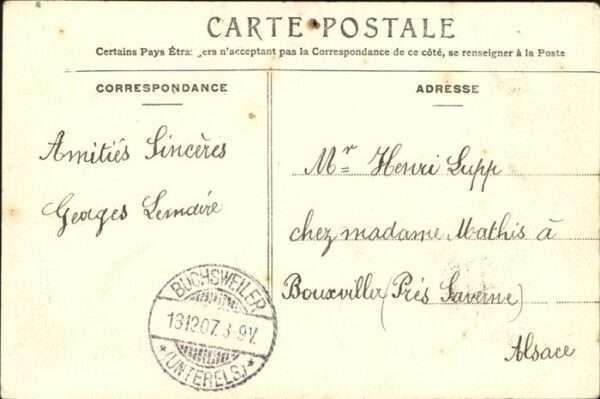 CARTE POSTALE
Certains Pays Étra: ers n'acceptant pas la Correspondance de ce côté, se renseigner à la Poste
CORRESPONDANCE
ADRESSE
Amitiés Sincères
Georges Lemaire
Mr Henri Lupp
chez madame Mathis à
Bouxviller (Prés Saverne)
Alsace
BUCHSWEILER
13 12 07. 8-9V.
*(UNTERELS.)*